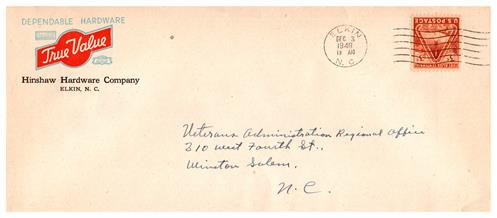 DEPENDABLE HARDWARE
True Value
Hinshaw Hardware Company
ELKIN, N. C.
ELKIN
DEC 3
1948
N. C.
U.S. POSTAGE
Veterans Administration Regional Office
310 West Fourth St.,
Winston Salem.
N.C.